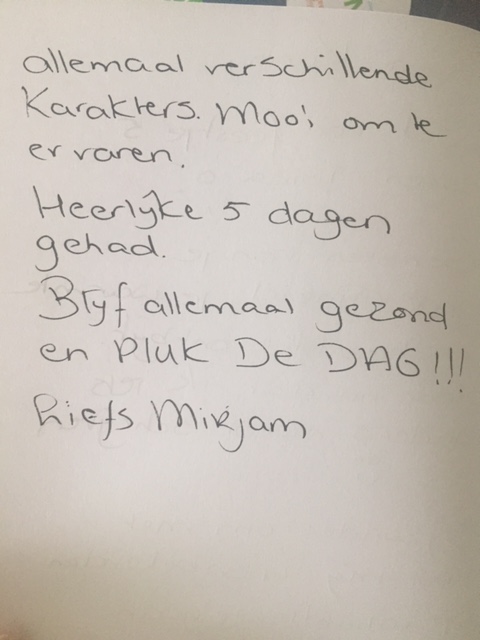 allemaal verschillende
Karakters. Mooi om te
ervaren.
Heerlijke 5 dagen
gehad.
Blijf allemaal gezond
en Pluk De DAG!!!
Liefs Mirjam